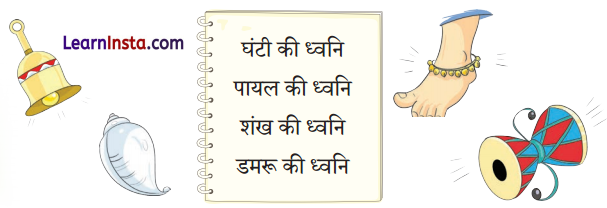 LearnInsta.com
घंटी की ध्वनि
पायल की ध्वनि
शंख की ध्वनि
डमरू की ध्वनि